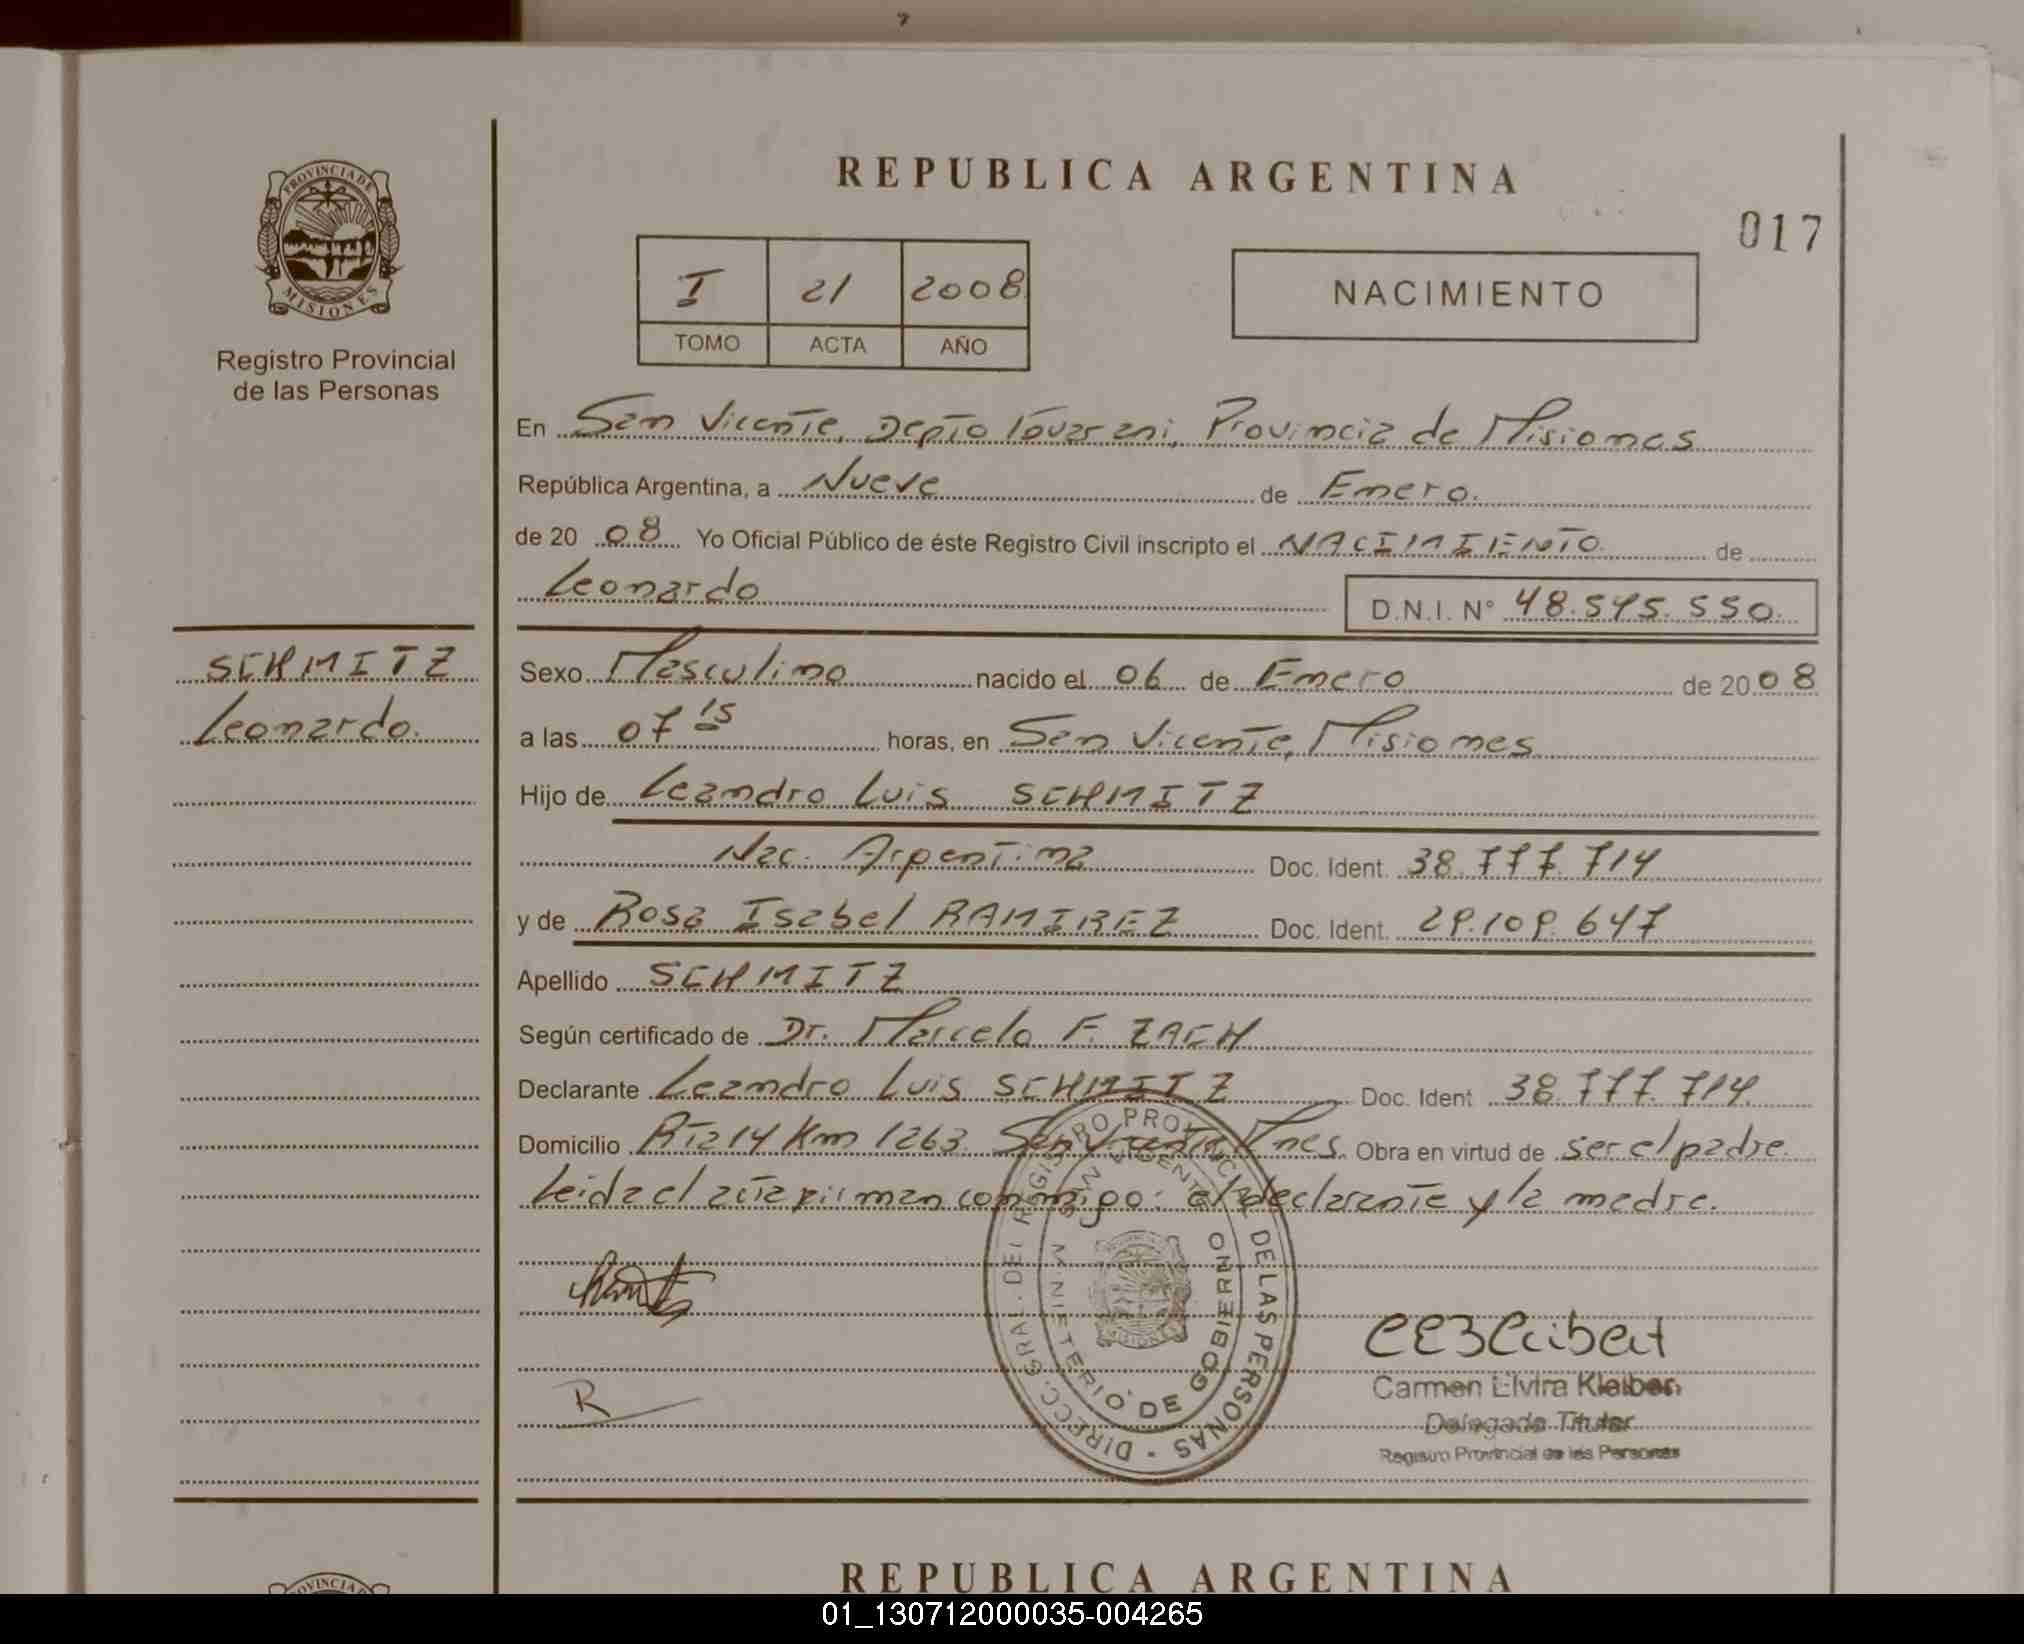 REPUBLICA ARGENTINA
017
PROVINCIA DE MISIONES
Registro Provincial
de las Personas
I 21 2008
TOMO ACTA AÑO
NACIMIENTO
En San Vicente, Depto Guarani, Provincia de Misiones
República Argentina, a Nueve de Enero.
de 20 08 Yo Oficial Público de éste Registro Civil inscripto el NACIMIENTO de
Leonardo D.N.I. N° 48.545.550.
SCHMITZ
Leonardo.
Sexo Masculino nacido el 06 de Enero de 20 08
a las 07 15 horas, en San Vicente, Misiones
Hijo de Leandro Luis SCHMITZ
Nac. Argentina Doc. Ident. 38.777.714
y de Rosa Isabel RAMIREZ Doc. Ident. 29.109.647
Apellido SCHMITZ
Según certificado de Dr. Marcelo F. ZACH
Declarante Leandro Luis SCHMITZ Doc. Ident 38.777.714
Domicilio Rta 14 Km 1263. San Vicente Mnes. Obra en virtud de ser el padre.
Leida el acta firman conmigo: el declarante y la madre.
DIRECC. GRAL. DEL REGISTRO PROVINCIAL DE LAS PERSONAS
SAN VICENTE
MINISTERIO DE GOBIERNO
MISIONES
R
Carmen Elvira Kleiber
Delegada Titular
Registro Provincial de las Personas
PROVINCIA DE
REPUBLICA ARGENTINA
01_130712000035-004265